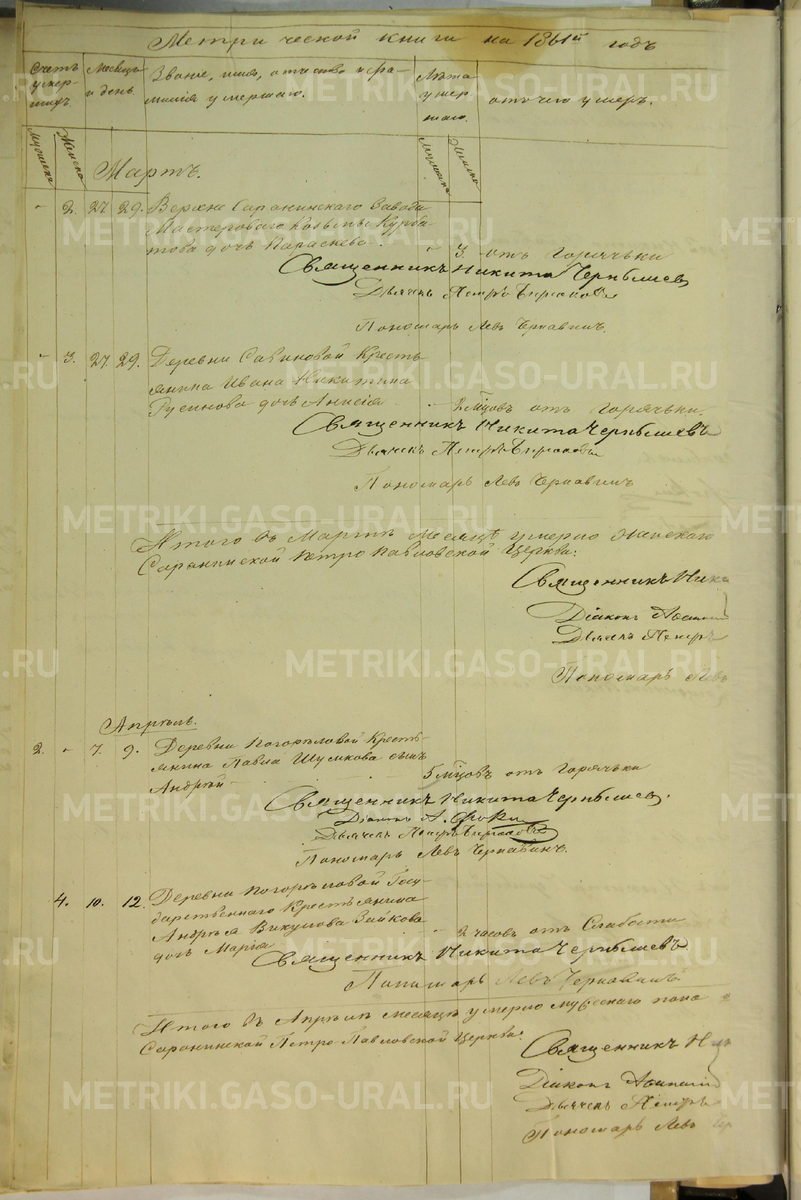 Метрической книги на 1861й годъ
Счетъ умершихъ.
Мужеска
Женска
Месяцъ и день.
Званіе, имя, отчество и фамилія умершаго.
Лѣта умершаго.
Мужеска
Женска
отъ чего умеръ.
Мартъ.
- 2. 27. 29. Верхне Саранинскаго Завода
Мастероваго
дочь Параскева. - 3. отъ Горячьки
Священникъ Никита Чернышевъ
Дьячекъ Петръ
Пономарь Левъ Чернавинъ.
- 3. 27. 29. Деревни Савиновой Кресть
янина Ивана Никитина
Русинова дочь Анисія - 2 мѣцовъ отъ Горячьки.
Священникъ Никита Чернышевъ
Дьячекъ Петръ
Пономарь Левъ Чернавинъ
Итого въ Мартѣ месяцѣ умерло женскаго
Саранинской Петро Павловской Церкви:
Священникъ Ника
Діаконъ
Дьячекъ Петръ
Пономарь Левъ
Апрѣль.
2. - 7. 9. Деревни Погорѣловой Кресть
янина Павла Шумкова сынъ
Андрей - 5 мѣцовъ отъ Горячьки
Священникъ Никита Чернышевъ.
Діаконъ А.
Дьячекъ Петръ
Пономарь Левъ Чернавинъ.
4. 10. 12. Деревни Погорѣловой Госу-
дарственнаго Крестьянина
Андрея Викулова Зыкова
дочь Марія - 2 часовъ отъ Слабости
Священникъ Никита Чернышевъ
Пономарь Левъ Чернавинъ.
Итого въ Апрѣлѣ месяцѣ умерло мужескаго пола
Саранинской Петро-Павловской Церкви:
Священникъ Ник
Діаконъ
Дьячекъ Петръ
Пономарь Левъ Чер
METRIKI.GASO-URAL.RU